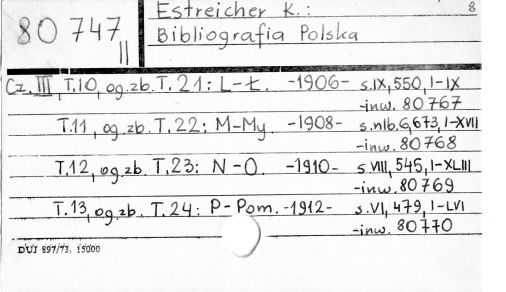 Estreicher K.: 8
80 747 II Bibliografia Polska
Cz. III, T.10, og.zb. T. 21: L-Ł. -1906- s.IX, 550, I-IX
-inw. 80767
T.11, og.zb. T. 22: M-My. -1908- s.nlb.6, 673, I-XVII
-inw. 80768
T.12, og.zb. T.23: N-O. -1910- s VIII, 545, I-XLIII
-inw. 80769
T.13, og.zb. T. 24: P-Pom. -1912- s.VI, 479, I-LVI
-inw. 80770
DUJ 897/73. 15000